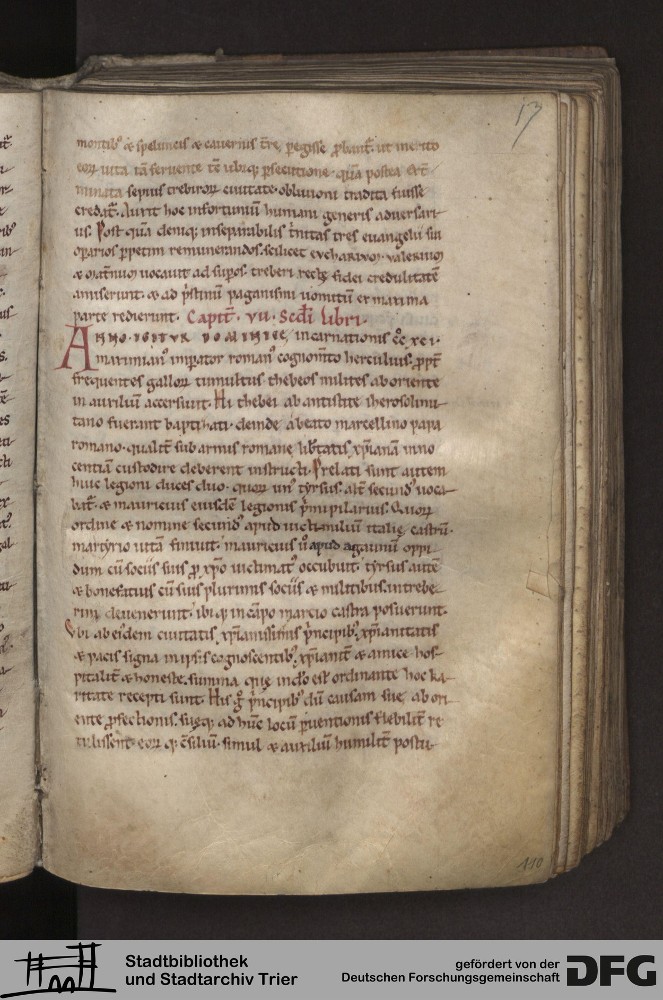 17
montib⁹ & speluncis & cavernis t̄re, pegisse ꝓbant̄. ut merito
eoꝝ uita tā feruente tē ubiq; psecutione · quā postea ext̄
minata sepius trebiroꝝ ciuitate · obliuioni tradita fuisse
credat̄. Aurit hoc infortuniū humani generis aduersari-
us. Post quā deniq; inseparabilis t̄nitas tres euangelii sui
oparios ppetim remunerandos, scilicet euchariū · valeriū
& mat̄nū uocauit ad supos. treberi rectę fidei credulitatē
amiserunt · & ad p̄stinū paganismi uomitū ex maxima
parte redierunt. Capit̄ · VII · Scd̄i Libri ·
ANNO · IGITUR DOMINICE, incarnationis cc̄ xci ·
maximian⁹ impator roman⁹ cognom̄to herculius. ppt̄
frequentes galloꝝ tumultus thebeos milites ab oriente
in auxiliū accersiuit. Hi thebei ab antistite iherosolimi-
tano fuerant baptizati · deinde a beato marcellino papa
romano · qualit̄ sub armis romanę lib̄tatis xp̄ianā inno
centiā custodire deberent instructi. Prelati sunt autem
huic legioni duces duo · quoꝝ un⁹ tyrsus. alt̄ secund⁹ uoca-
bat̄. & mauricius eiusdē legionis p̄mipilarius. Quoꝝ
ordine & nomine secund⁹ apud uictimiliū italię castrū ·
martyrio uitā finiuit. mauricius ū apud agaunū oppi
dum cū sociis suis ꝓ xp̄o uictimat⁹ occubuit. tyrsus autē
& bonefatius cū suis plurimis sociis & militibus in trebe-
rim deuenerunt. ibi q; in cāpo marcio castra posuerunt ·
Ubi ab eisdem ciuitatis xp̄ianissimis p̄ncipib⁹, xp̄ianitatis
& pacis signa in ipsis cognoscentib⁹ xp̄ianit̄ & amice hos-
pitalit̄ & honeste. summa que in cl̄o est ordinante hoc ka-
ritate recepti sunt. His ḡ p̄ncipib⁹ dū causam suę, ab ori-
ente ꝓfectionis. suęq; ad hūc locū puentionis flebilit̄ re
tulissent · eoꝝ q; c̄siliū · simul & auxiliū humilit̄ postu-
110
Stadtbibliothek
und Stadtarchiv Trier
gefördert von der
Deutschen Forschungsgemeinschaft
DFG